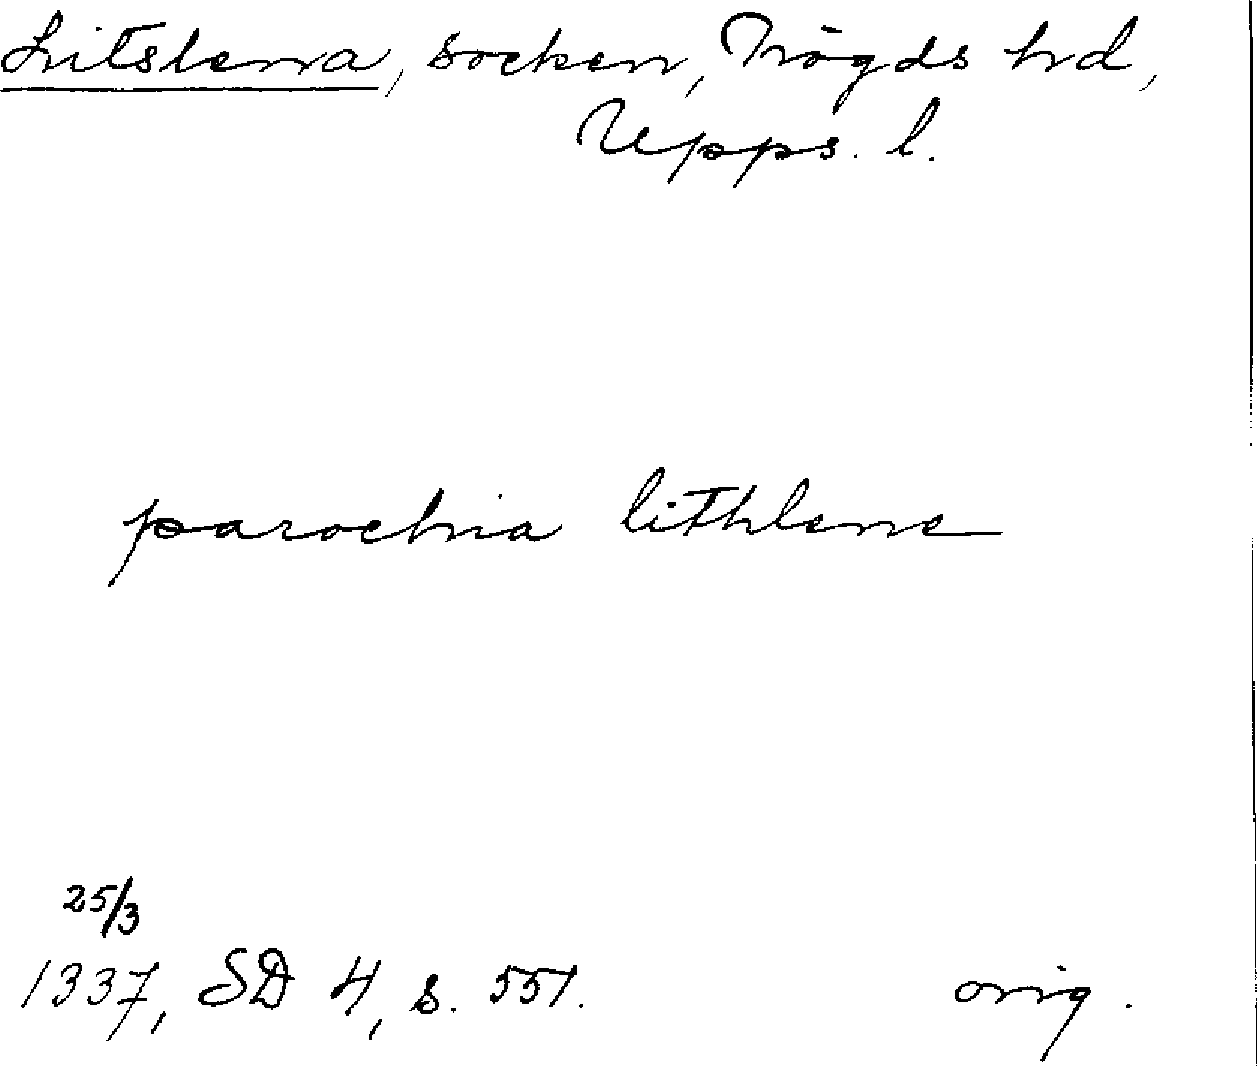 Litslena, socken, Trögds hd,
Upps. l.
parochia lithlene
25/3
1337, SD 4, s. 551.
orig.